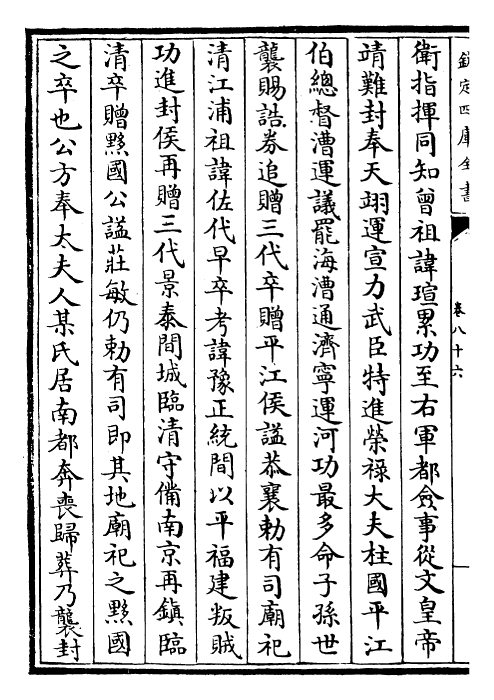 欽定四庫全書
卷八十六
衛指揮同知曾祖諱瑄累功至右軍都僉事從文皇帝
靖難封奉天翊運宣力武臣特進榮祿大夫柱國平江
伯總督漕運議罷海漕通濟寧運河功最多命子孫世
襲賜誥券追贈三代卒贈平江侯諡恭襄勅有司廟祀
清江浦祖諱佐代早卒考諱豫正統間以平福建叛賊
功進封侯再贈三代景泰間城臨清守備南京再鎮臨
清卒贈黟國公諡莊敏仍勅有司即其地廟祀之黟國
之卒也公方奉太夫人某氏居南都奔喪歸葬乃襲封